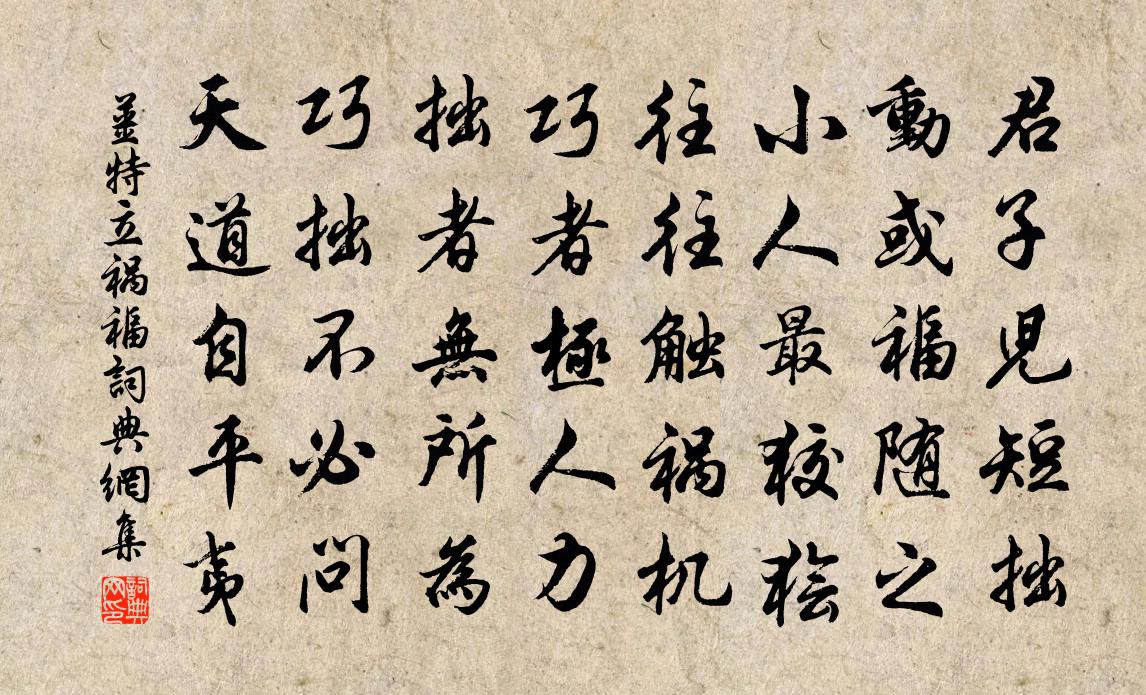 君子児短拙
動或福随之
小人最狡獪
往往触祸机
巧者極人力
拙者無所為
巧拙不必问
天道自平夷
薑特立祸福詞典網集
詞典网印